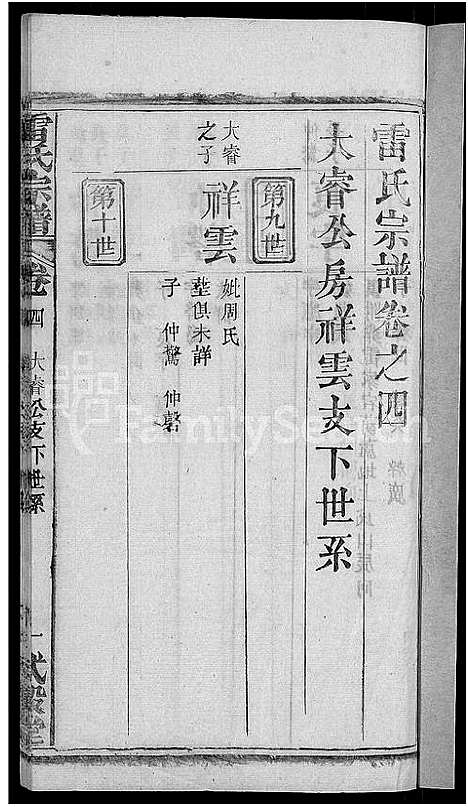 雷氏宗譜卷之四
大睿公房祥雲支下世系
第九世
大睿
之子
祥雲
妣周氏
塟俱未詳
子 仲驚 仲磬
第十世
雷氏宗譜
卷四
大睿公支下世系
一
FamilySearch